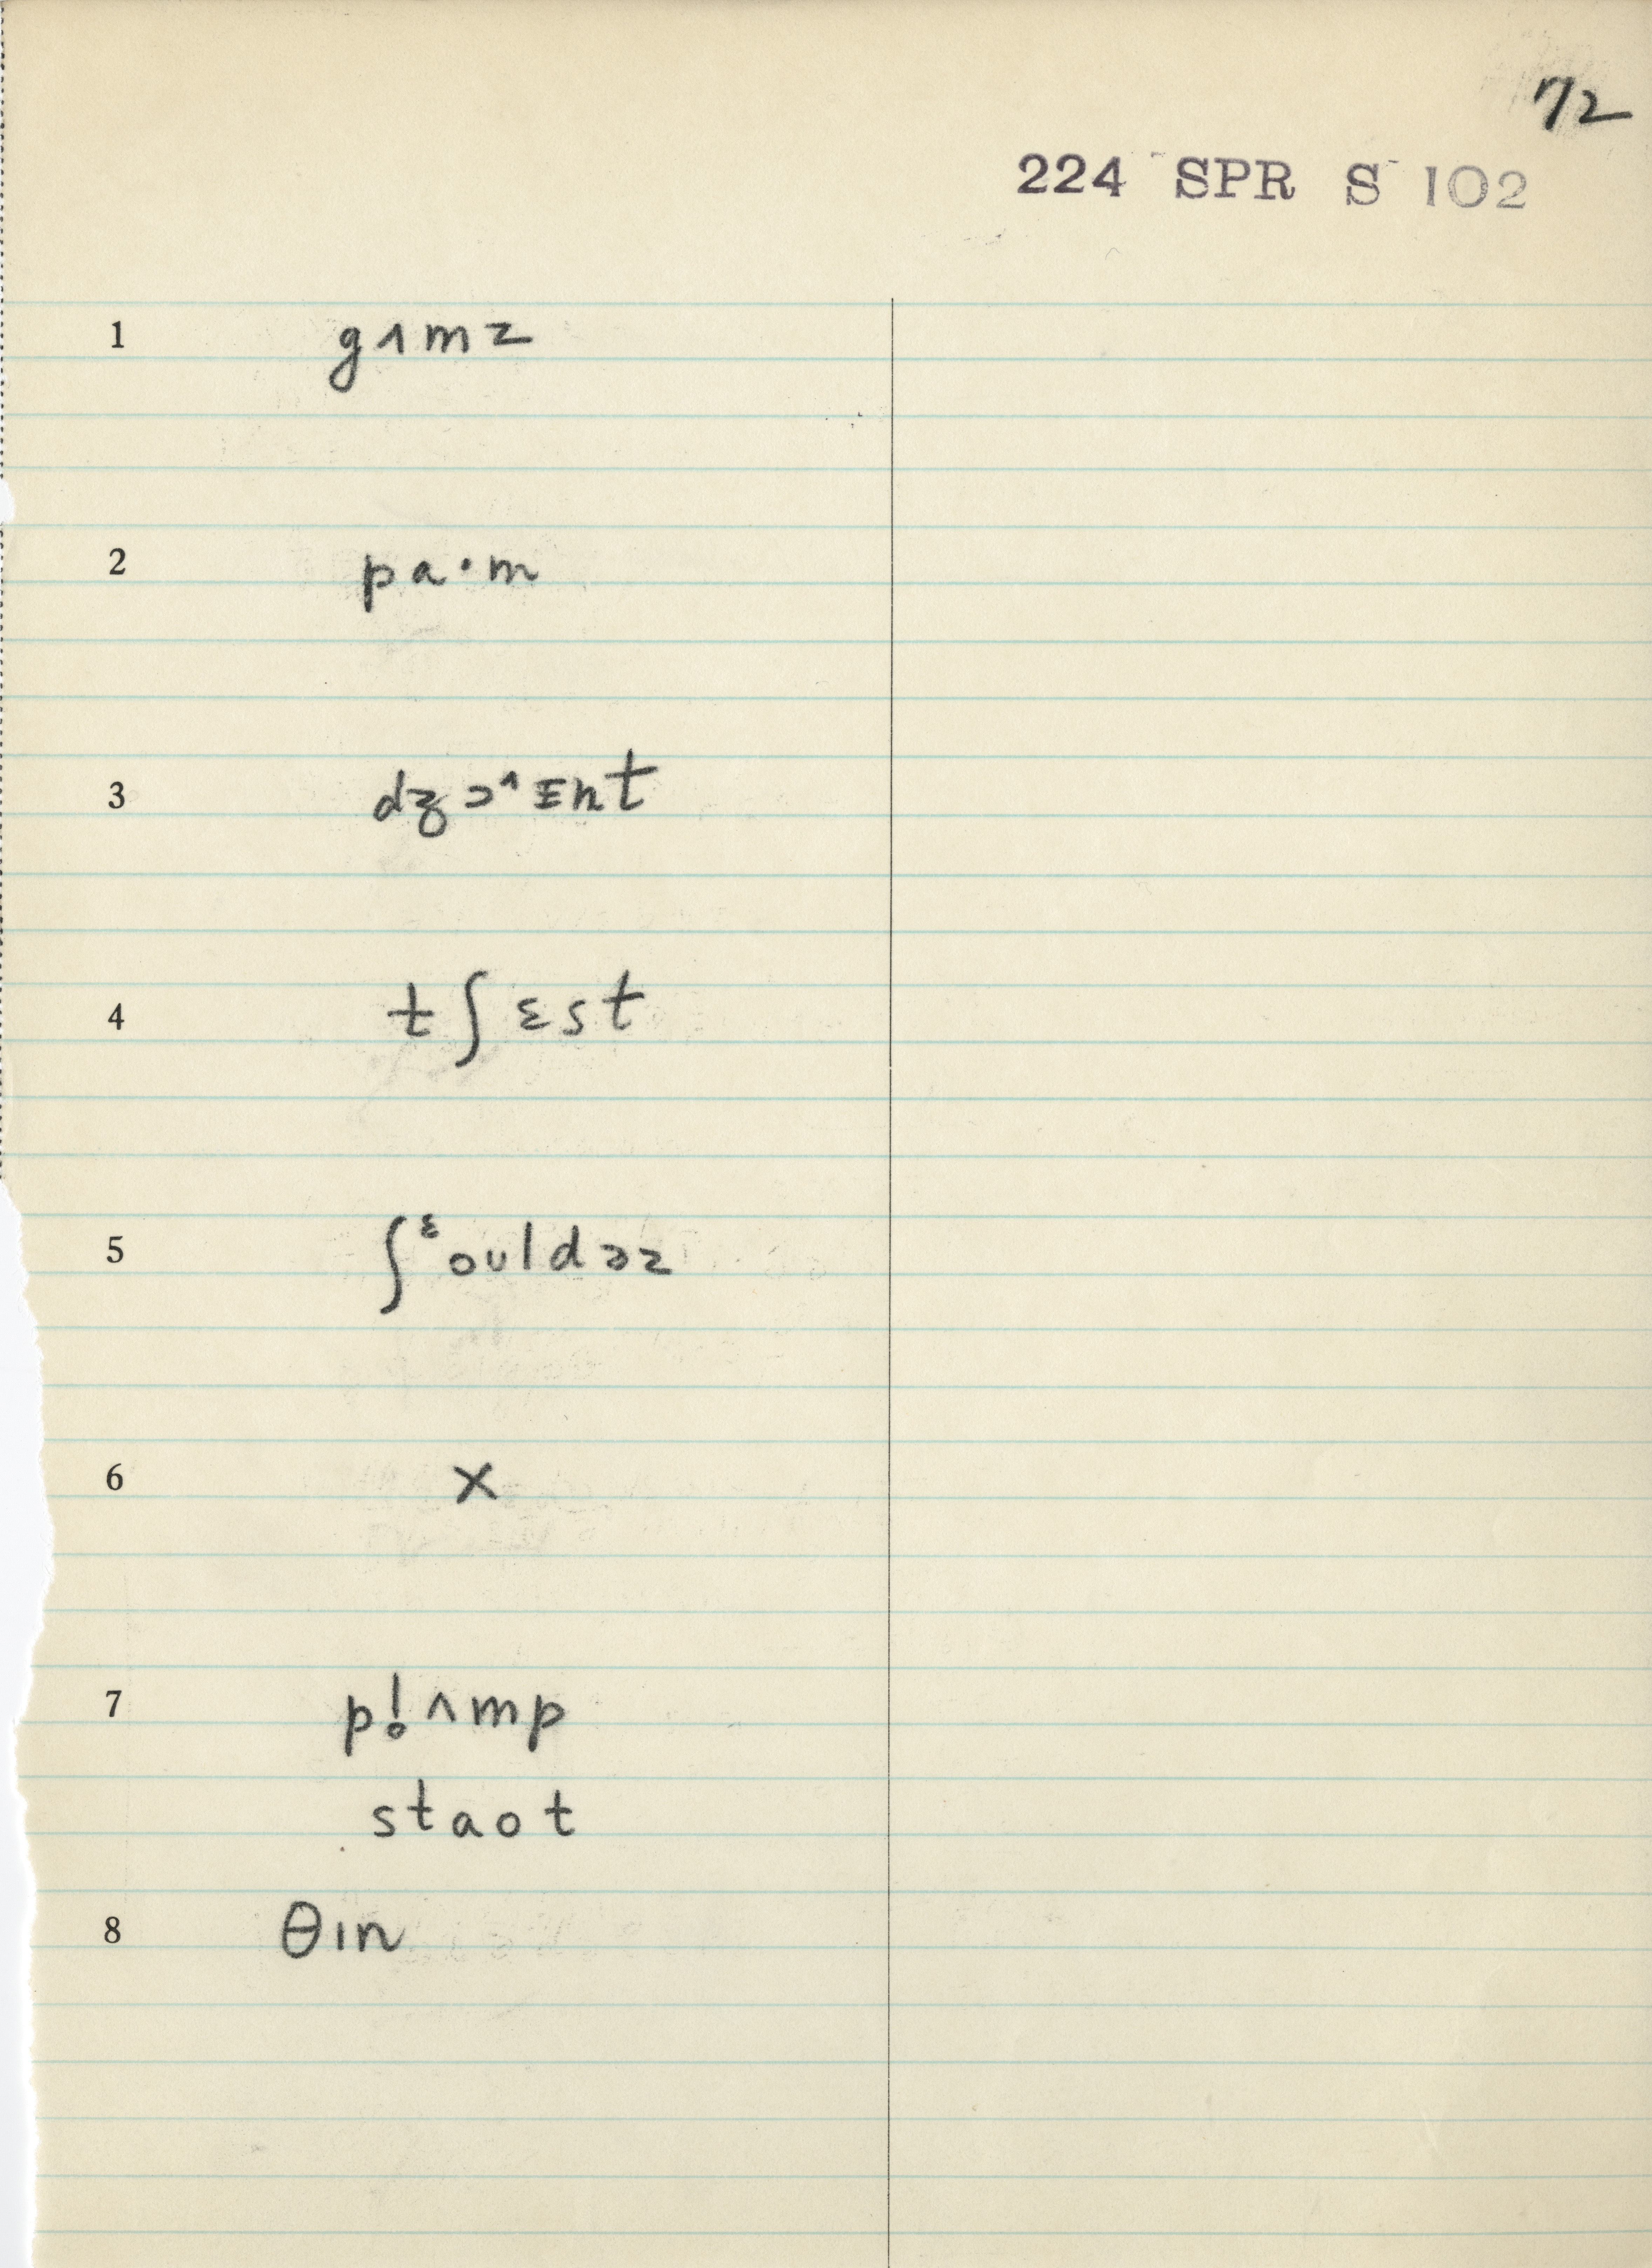 72
224 SPR S 102
1 gʌmz
2 pa·m
3 dʒɔ^ɪnt
4 tʃɛst
5 ʃᵋouldəz
6 x
7 pl̥ʌmp
staot
8 θɪn